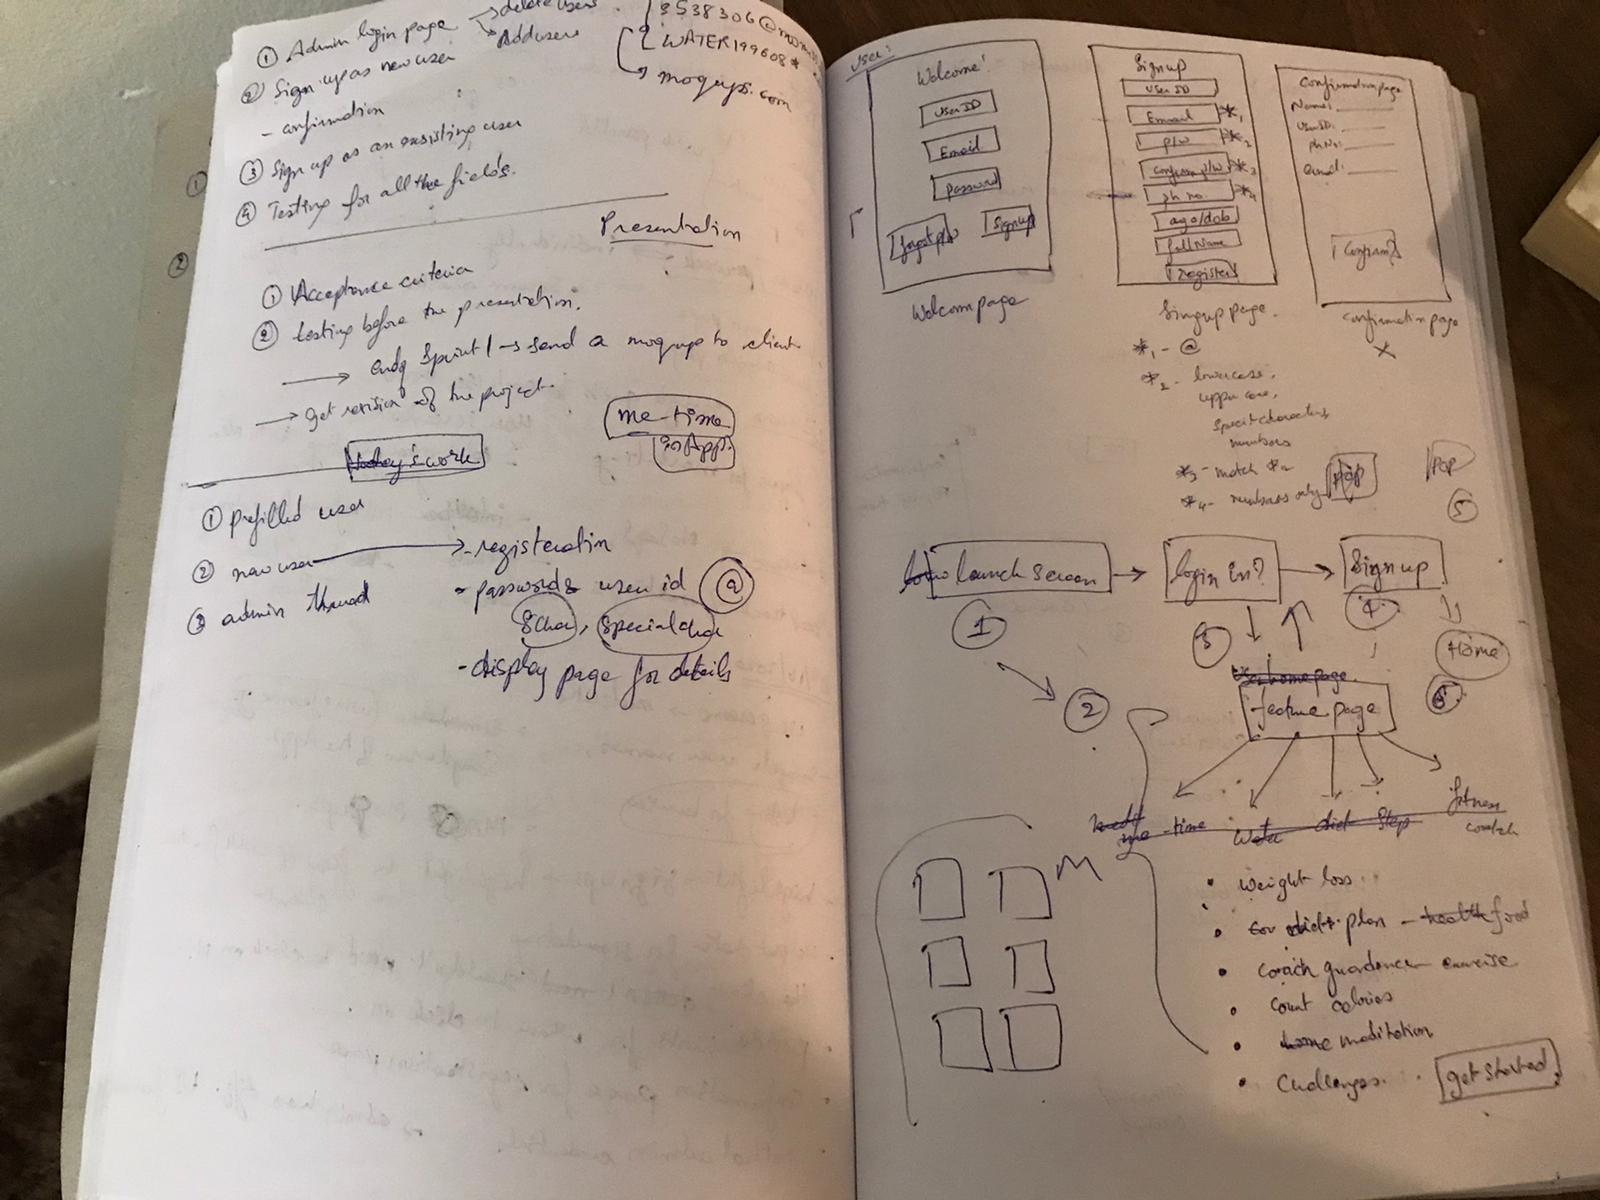 ① Admin login page
delete users
Add users
WATER199608*
moqups.com
② Sign up as new user
- confirmation
③ Sign up as an exsisting user
④ Testing for all the fields.
Presentation
① Acceptance criteria
② testing before the presentation.
→ end of Sprint 1 → send a moqup to client
→ Get revision of the project
me-time
in App.
① prefilled user
② new user → - registeration
- password & user id @
8 char, special char
- display page for details
③ admin thread
User:
Welcome!
User ID
Email
Password
forgot p/w
Signup
Welcompage
Signup
User ID
Email *1
p/w *2
confirm p/w *3
ph no. *4
ago/dob
full Name
Register
Singup page.
Confirmation page
Name:
User ID:
ph No:
email:
Confirm?
confirmation page
X
*1 - @
*2 - lowercase,
uppercase,
special characters,
numbers
*3 - match *2
*4 - numbers only
pop
pop
5
launch screen → login in? → Sign up
1
2
3
4
Home
6
User home page
feature page
me-time
Water
diet
Step
fitness
coach
• weight loss
• diet plan - health food
• coach guardence exercise
• count calories
• meditation
• Challenges.
get started